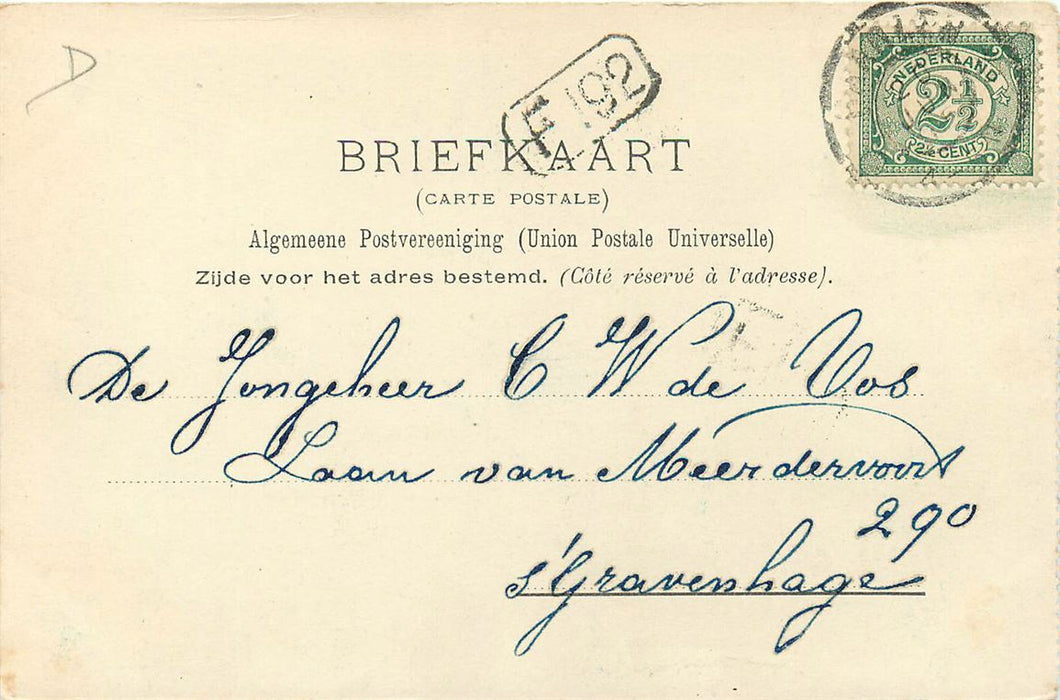 D
F 192
NEDERLAND
2½
2½ CENT
BRIEFKAART
(CARTE POSTALE)
Algemeene Postvereeniging (Union Postale Universelle)
Zijde voor het adres bestemd. (Côté réservé à l'adresse).
De Jongeheer C W de Vos
Laan van Meerdervoort
290
s'Gravenhage